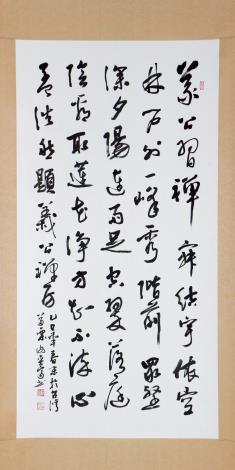 義公習禪寂結宇依空
林戶外一峰秀階前眾壑
深夕陽連雨足空翠落庭
陰看取蓮花淨方知不染心
孟浩然題義公禪房
乙巳年春末於台灣
苗栗